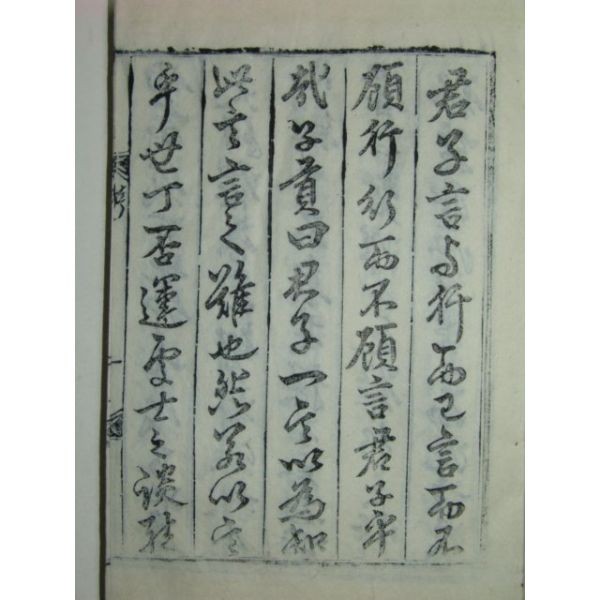 君子言与行而已言而不
顧行行而不顧言君子乎
哉子貢曰君子一言以為知
此言言之難也然若以言
乎世丁否運處士之談